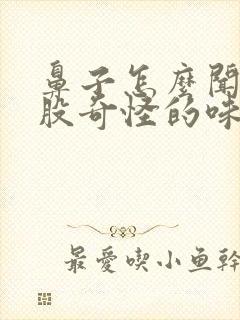 鼻子怎麼聞
股奇怪的味
最愛喫小魚幹